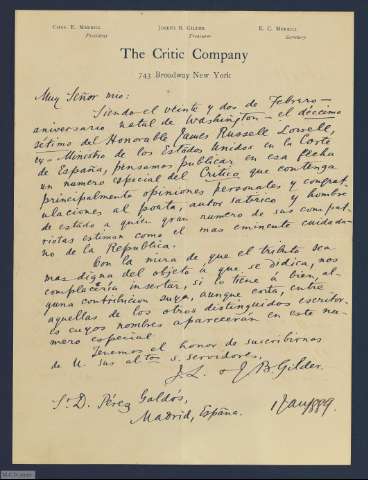 CHAS. E. MERRILL
President
JOSEPH B. GILDER
Treasurer
E. C. MERRILL
Secretary
The Critic Company
743 Broadway New York
Muy Señor mio:
Siendo el veinte y dos de Febrero –
aniversario natal de Washington – el décimo
sétimo del Honorable James Russell Lowell,
ex-Ministro de los Estados Unidos en la Corte
de España, pensamos publicar en esa fecha
un numero especial del Critico que contenga
principalmente opiniones personales, y congrat-
ulaciones al poeta, autor satirico y hombre
de estado a quien gran numero de sus
estiman como el mas eminente ciudada-
no de la Republica.
Con la mira de que el tributo sea
mas digna del objeto a que se dedica, nos
complaceria insertar, si lo tiene á bien, al-
guna contribucion suya, aunque corta, entre
aquellas de los otros distinguidos escritor-
es cuyos nombres apareceran en este nu-
mero especial.
Tenemos el honor de suscribirnos
de U. sus altos s. servidores,
J. L. & J B Gilder.
Sr. D. Pérez Galdós,
Madrid, España.
1889.